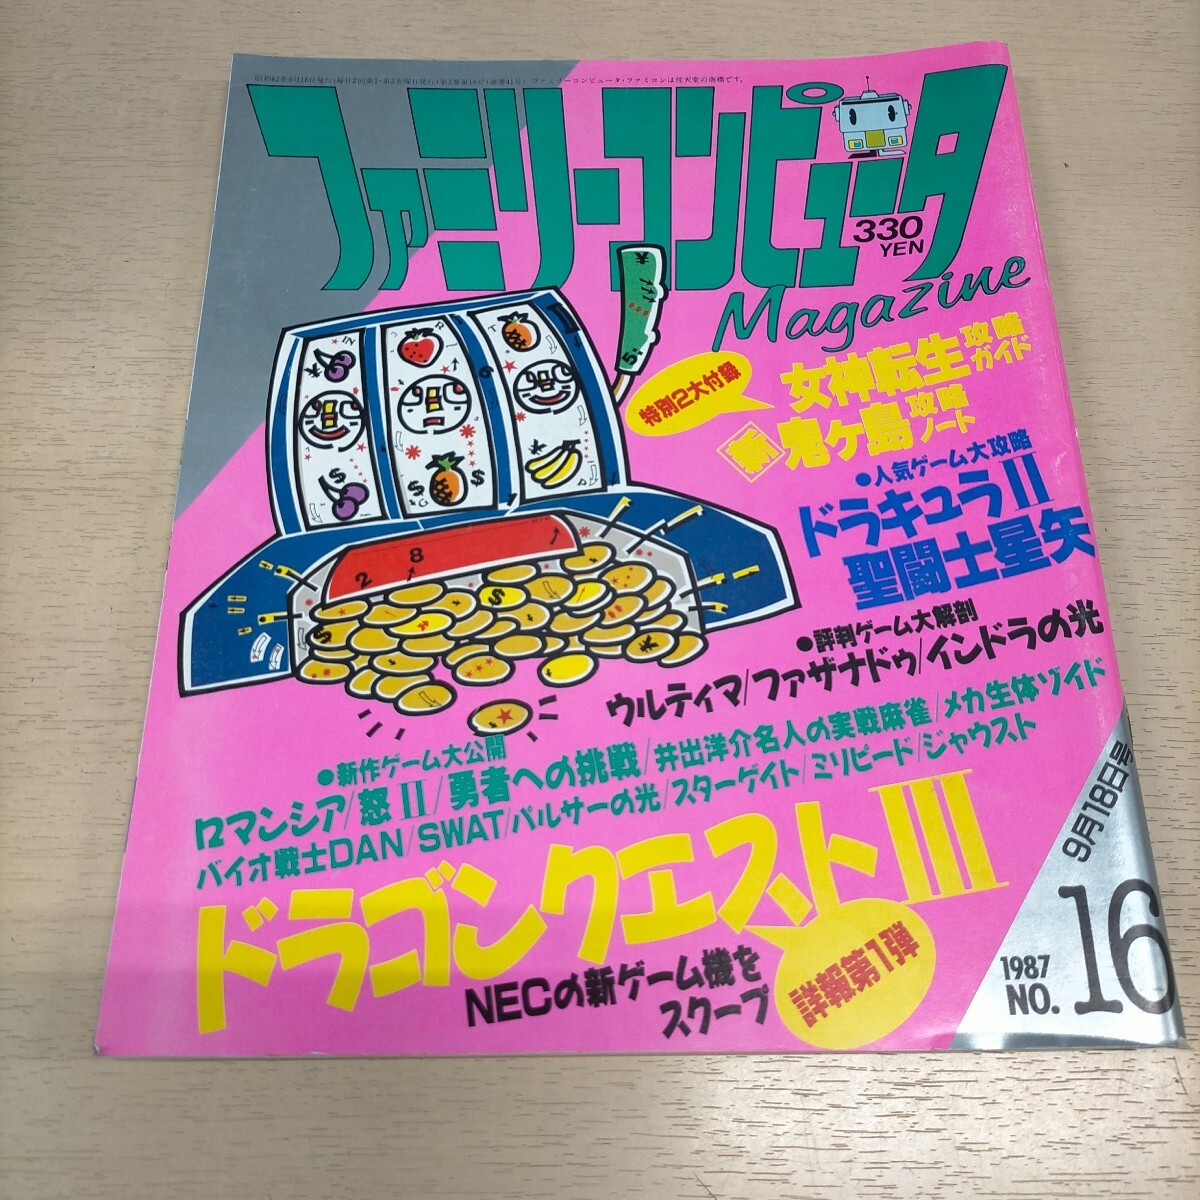 昭和62年9月18日発行(毎月2回第1・第3金曜日発行)第3巻第16号(通巻41号) ファミリーコンピュータ・ファミコンは任天堂の商標です。
ファミリーコンピュータ
330
YEN
Magazine
特別2大付録
女神転生攻略ガイド
新鬼ヶ島攻略ノート
●人気ゲーム大攻略
ドラキュラII
聖闘士星矢
●評判ゲーム大解剖
ウルティマ/ファザナドゥ/インドラの光
●新作ゲーム大公開
ロマンシア/怒II/勇者への挑戦/井出洋介名人の実戦麻雀/メカ生体ゾイド
バイオ戦士DAN/SWAT/パルサーの光/スターゲイト/ミリピード/ジャウスト
ドラゴンクエストIII
詳報第1弾
NECの新ゲーム機を
スクープ
9月18日号
1987
NO.
16